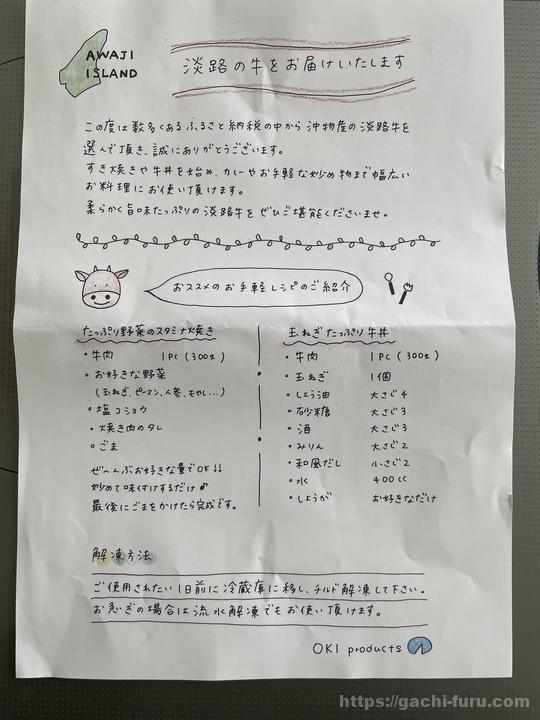 AWAJI
ISLAND
淡路の牛をお届けいたします
この度は数多くあるふるさと納税の中から沖物産の淡路牛を
選んで頂き、誠にありがとうございます。
すき焼きや牛丼を始め、カレーやお手軽な炒め物まで幅広い
お料理にお使い頂けます。
柔らかく旨味たっぷりの淡路牛をぜひご堪能くださいませ。
おススメのお手軽レシピのご紹介
たっぷり野菜のスタミナ焼き
・牛肉 1pc(300g)
・お好きな野菜
(玉ねぎ、ピーマン、人参、もやし...)
・塩コショウ
・焼き肉のタレ
・ごま
ぜ〜んぶお好きな量でOK!!
炒めて味付けするだけ♪
最後にごまをかけたら完成です。
玉ねぎたっぷり牛丼
・牛肉 1pc(300g)
・玉ねぎ 1個
・しょう油 大さじ4
・砂糖 大さじ3
・酒 大さじ3
・みりん 大さじ2
・和風だし 小さじ2
・水 400cc
・しょうが お好きなだけ
解凍方法
ご使用されたい1日前に冷蔵庫に移し、チルド解凍して下さい。
お急ぎの場合は流水解凍でもお使い頂けます。
OKI products
https://gachi-furu.com